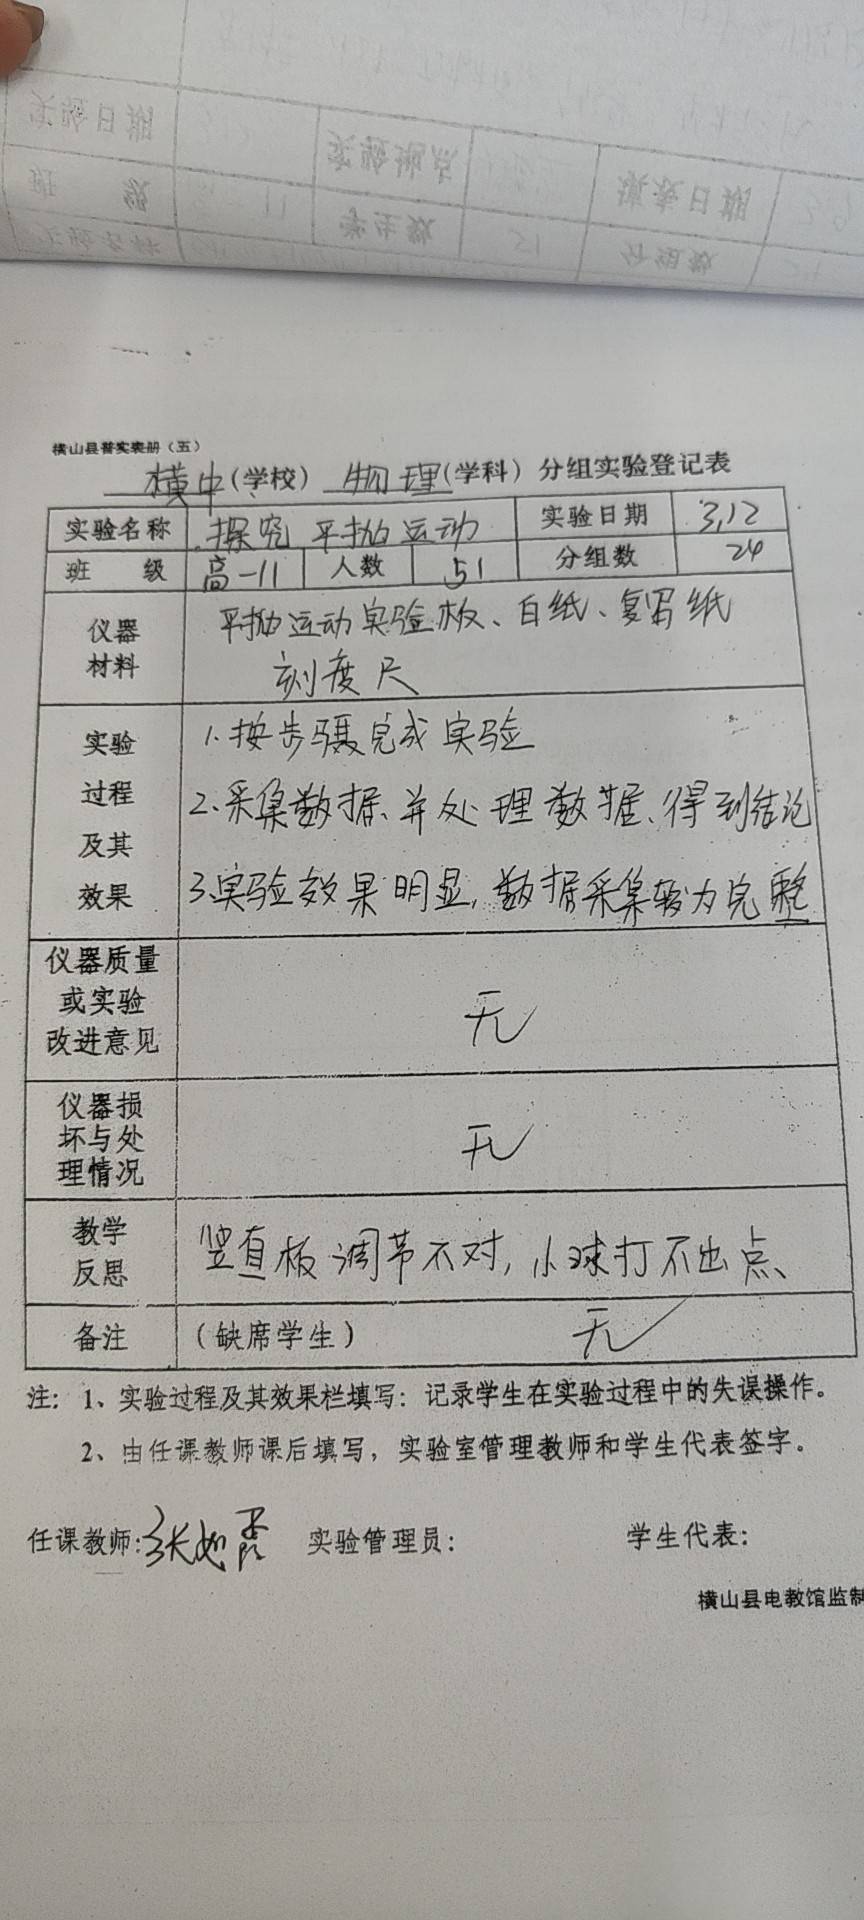 实验日期
实验地点
填表日期
班 级
11
学生数
51
分组数
24
实验名称
横山县普实表册（五）
横中（学校） 物理（学科）分组实验登记表
实验名称 探究平抛运动 实验日期 3.12
班 级 高一11 人数 51 分组数 24
仪器
材料
平抛运动实验板、白纸、复写纸
刻度尺
实验
过程
及其
效果
1.按步骤完成实验
2.采集数据、并处理数据、得到结论
3.实验效果明显,数据采集较为完整
仪器质量
或实验
改进意见
无
仪器损
坏与处
理情况
无
教学
反思
竖直板调节不对,小球打不出点、
备注 （缺席学生） 无
注：1、实验过程及其效果栏填写：记录学生在实验过程中的失误操作。
2、由任课教师课后填写，实验室管理教师和学生代表签字。
任课教师:张如 实验管理员: 学生代表:
横山县电教馆监制